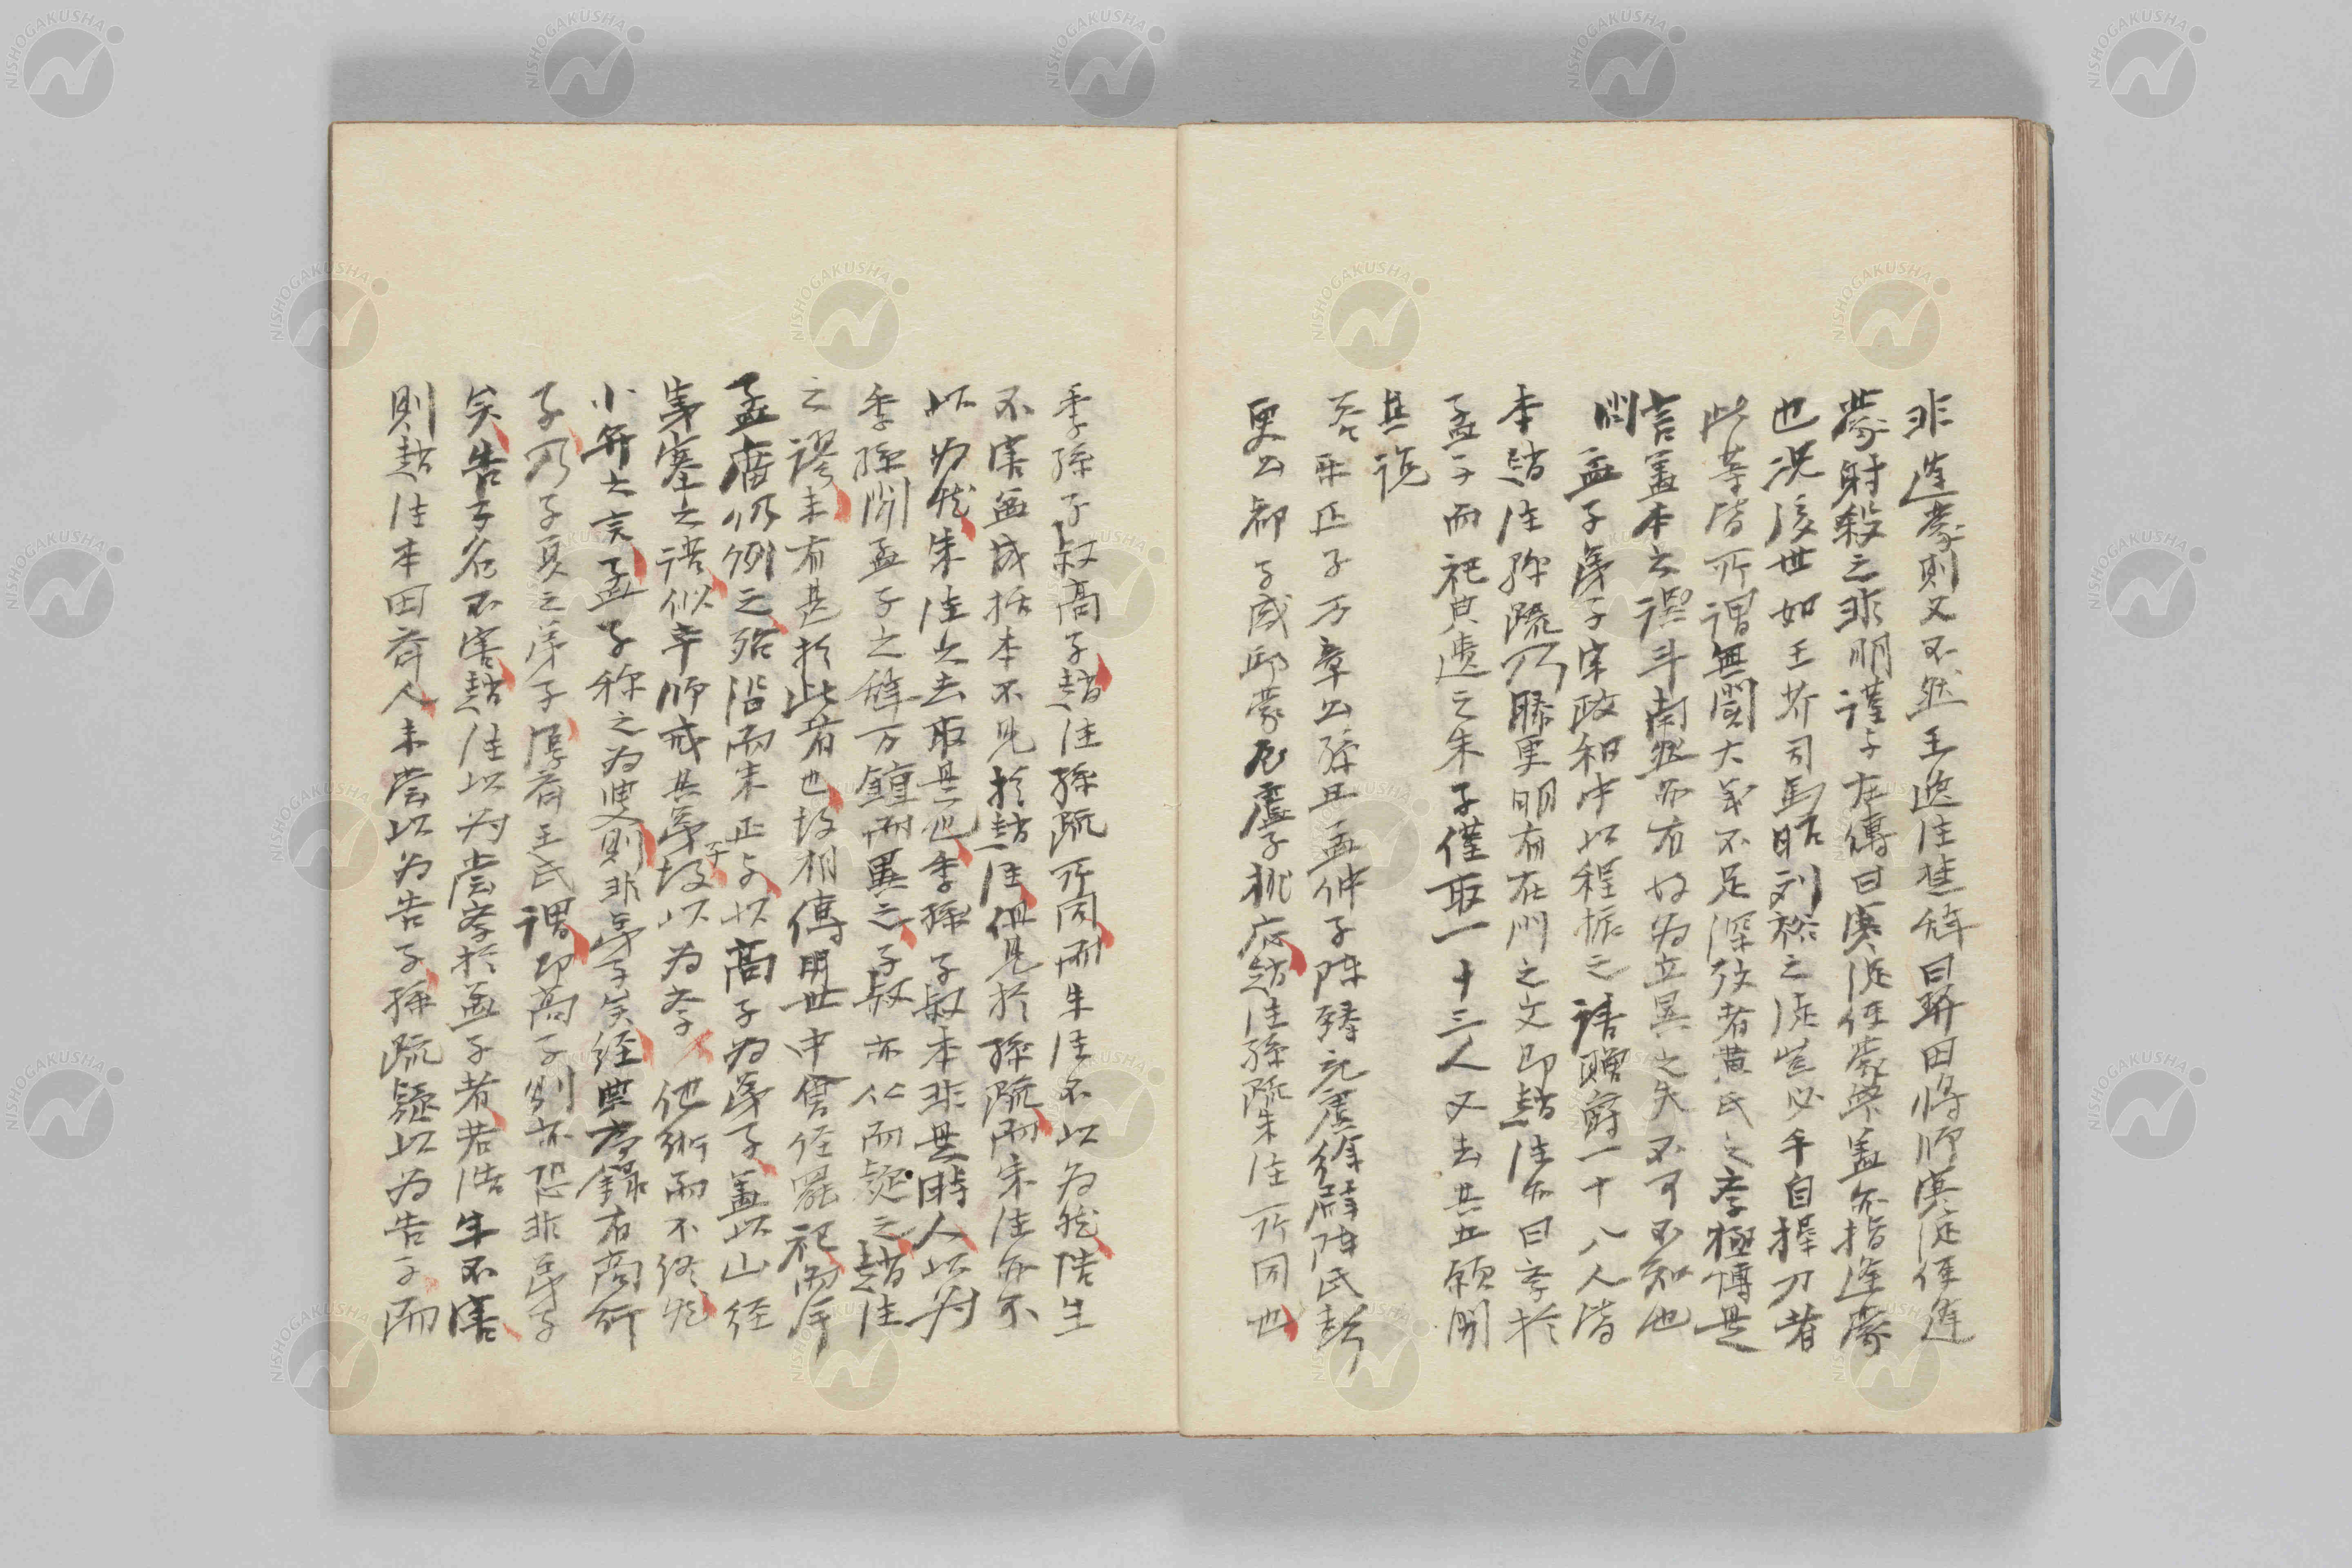 非逢蒙則又不然王逸注楚辞曰羿田将帰寒浞使逢
蒙射殺之非明謹乎左傳曰寒浞使家衆蓋亦指逢蒙
也况後世如王莽司馬昭刘裕之流豈必手自操刀者
此等皆所謂無関大義不足深攷者黄氏之学極博是
言蓋本之禮斗南然亦有好為立異之失不可不知也
問孟子弟子宋政和中以程振之請贈爵一十八人皆
本趙注孫疏乃滕更明有在門之文即趙注亦曰学於
孟子而祀典遺之朱子僅取一十三人又去其五願聞
其説
答樂正子万章公孫丑孟仲子陳臻充虞徐辟陳氏彭
更公都子咸邱蒙屋廬子桃応趙注孫疏朱注所同也
季孫子叔高子趙注孫疏所同而朱注不以為然浩生
不害盆成括本不見於趙注但見於孫疏而朱注亦不
以為然朱注之去取是也季孫子叔本非是時人以为
季孫聞孟子之辞万鍾而異之子叔亦从而疑之趙注
之謬未有甚於此者也故相傳明世中曾経罷祀而斥
孟廟仍例之殆沿而未正与以高子為弟子蓋以山径
茅塞之語似乎師戒其弟子故以為学他術而不終然
小弁之言孟子称之為叟則非弟子矣経典序録有高行
子乃子夏之弟子厚斎王氏謂即高子則亦恐非弟子
矣告子名不害趙注以为嘗学於孟子者若浩生不害
則趙注本曰斉人未嘗以為告子孫疏疑以為告子而